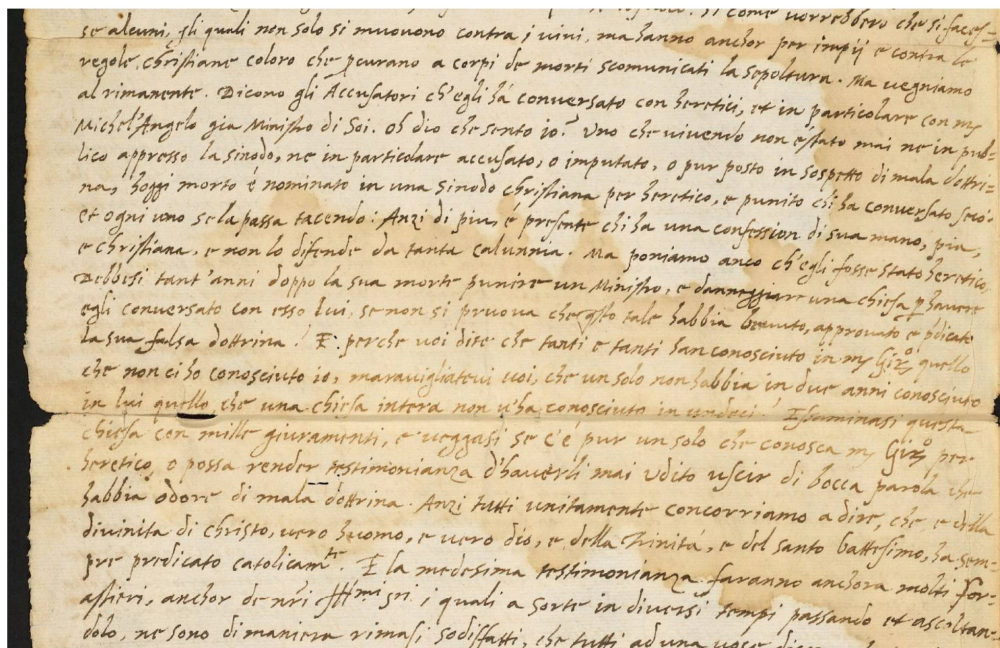 si come vorrebbero che si faces-
se alcuni, gli quali non solo si muovono contra i vivi, ma hanno anchor per impij e contra le
regole christiane coloro che pcurano a corpi de morti scomunicati la sepoltura. Ma vegniamo
al rimanente. Dicono gli Accusatori ch'egli há conversato con heretici, et in particolare con mr
Michel'Angelo gia Ministro di Soi. Oh dio che sento io? Uno che vivendo non é stato mai ne in pub-
lico appresso la sinodo, ne in particolare accusato, o imputato, o pur posto in sospetto di mala dottri-
na, hoggi morto é nominato in una sinodo christiana per heretico, e punito chi ha conversato seco:
et ogni uno se la passa tacendo: Anzi di piu, é presente chi ha una confession di sua mano, pia,
e christiana, e non lo difende da tanta calunnia. Ma poniamo anco ch'egli fosse stato heretico,
Debbesi tant'anni doppo la sua morte punire un Ministro, e danneggiare una chiesa p havere
egli conversato con esso lui, se non si pruova che qsto tale habbia bevuto, approvato e pdicato
la sua falsa dottrina? E perche voi dite che tanti e tanti han conosciuto in mr Giro quello
che non ci ho conosciuto io, maravigliatevi voi, che un solo non habbia in due anni conosciuto
in lui quello che una chiesa intera non v'ha conosciuto in undeci? Essaminasi questa
chiesa con mille giuramenti, e veggasi se c'é pur un solo che conosca mr Giro per
heretico, o possa render testimonianza d'haverli mai udito uscir di bocca parola che
habbia odore di mala dottrina. Anzi tutti unitamente concorriamo a dire, che, e della
divinita di Christo, vero huomo, e vero dio, e della Trinitá, e del santo battesimo, ha sem-
pre predicato catolicamte. E la medesima testimonianza faranno anchora molti For-
astieri, anchor de nri i quali a sorte in diversi tempi passando et ascoltan-
dolo, ne sono di maniera rimasi sodisfatti, che tutti ad una voce